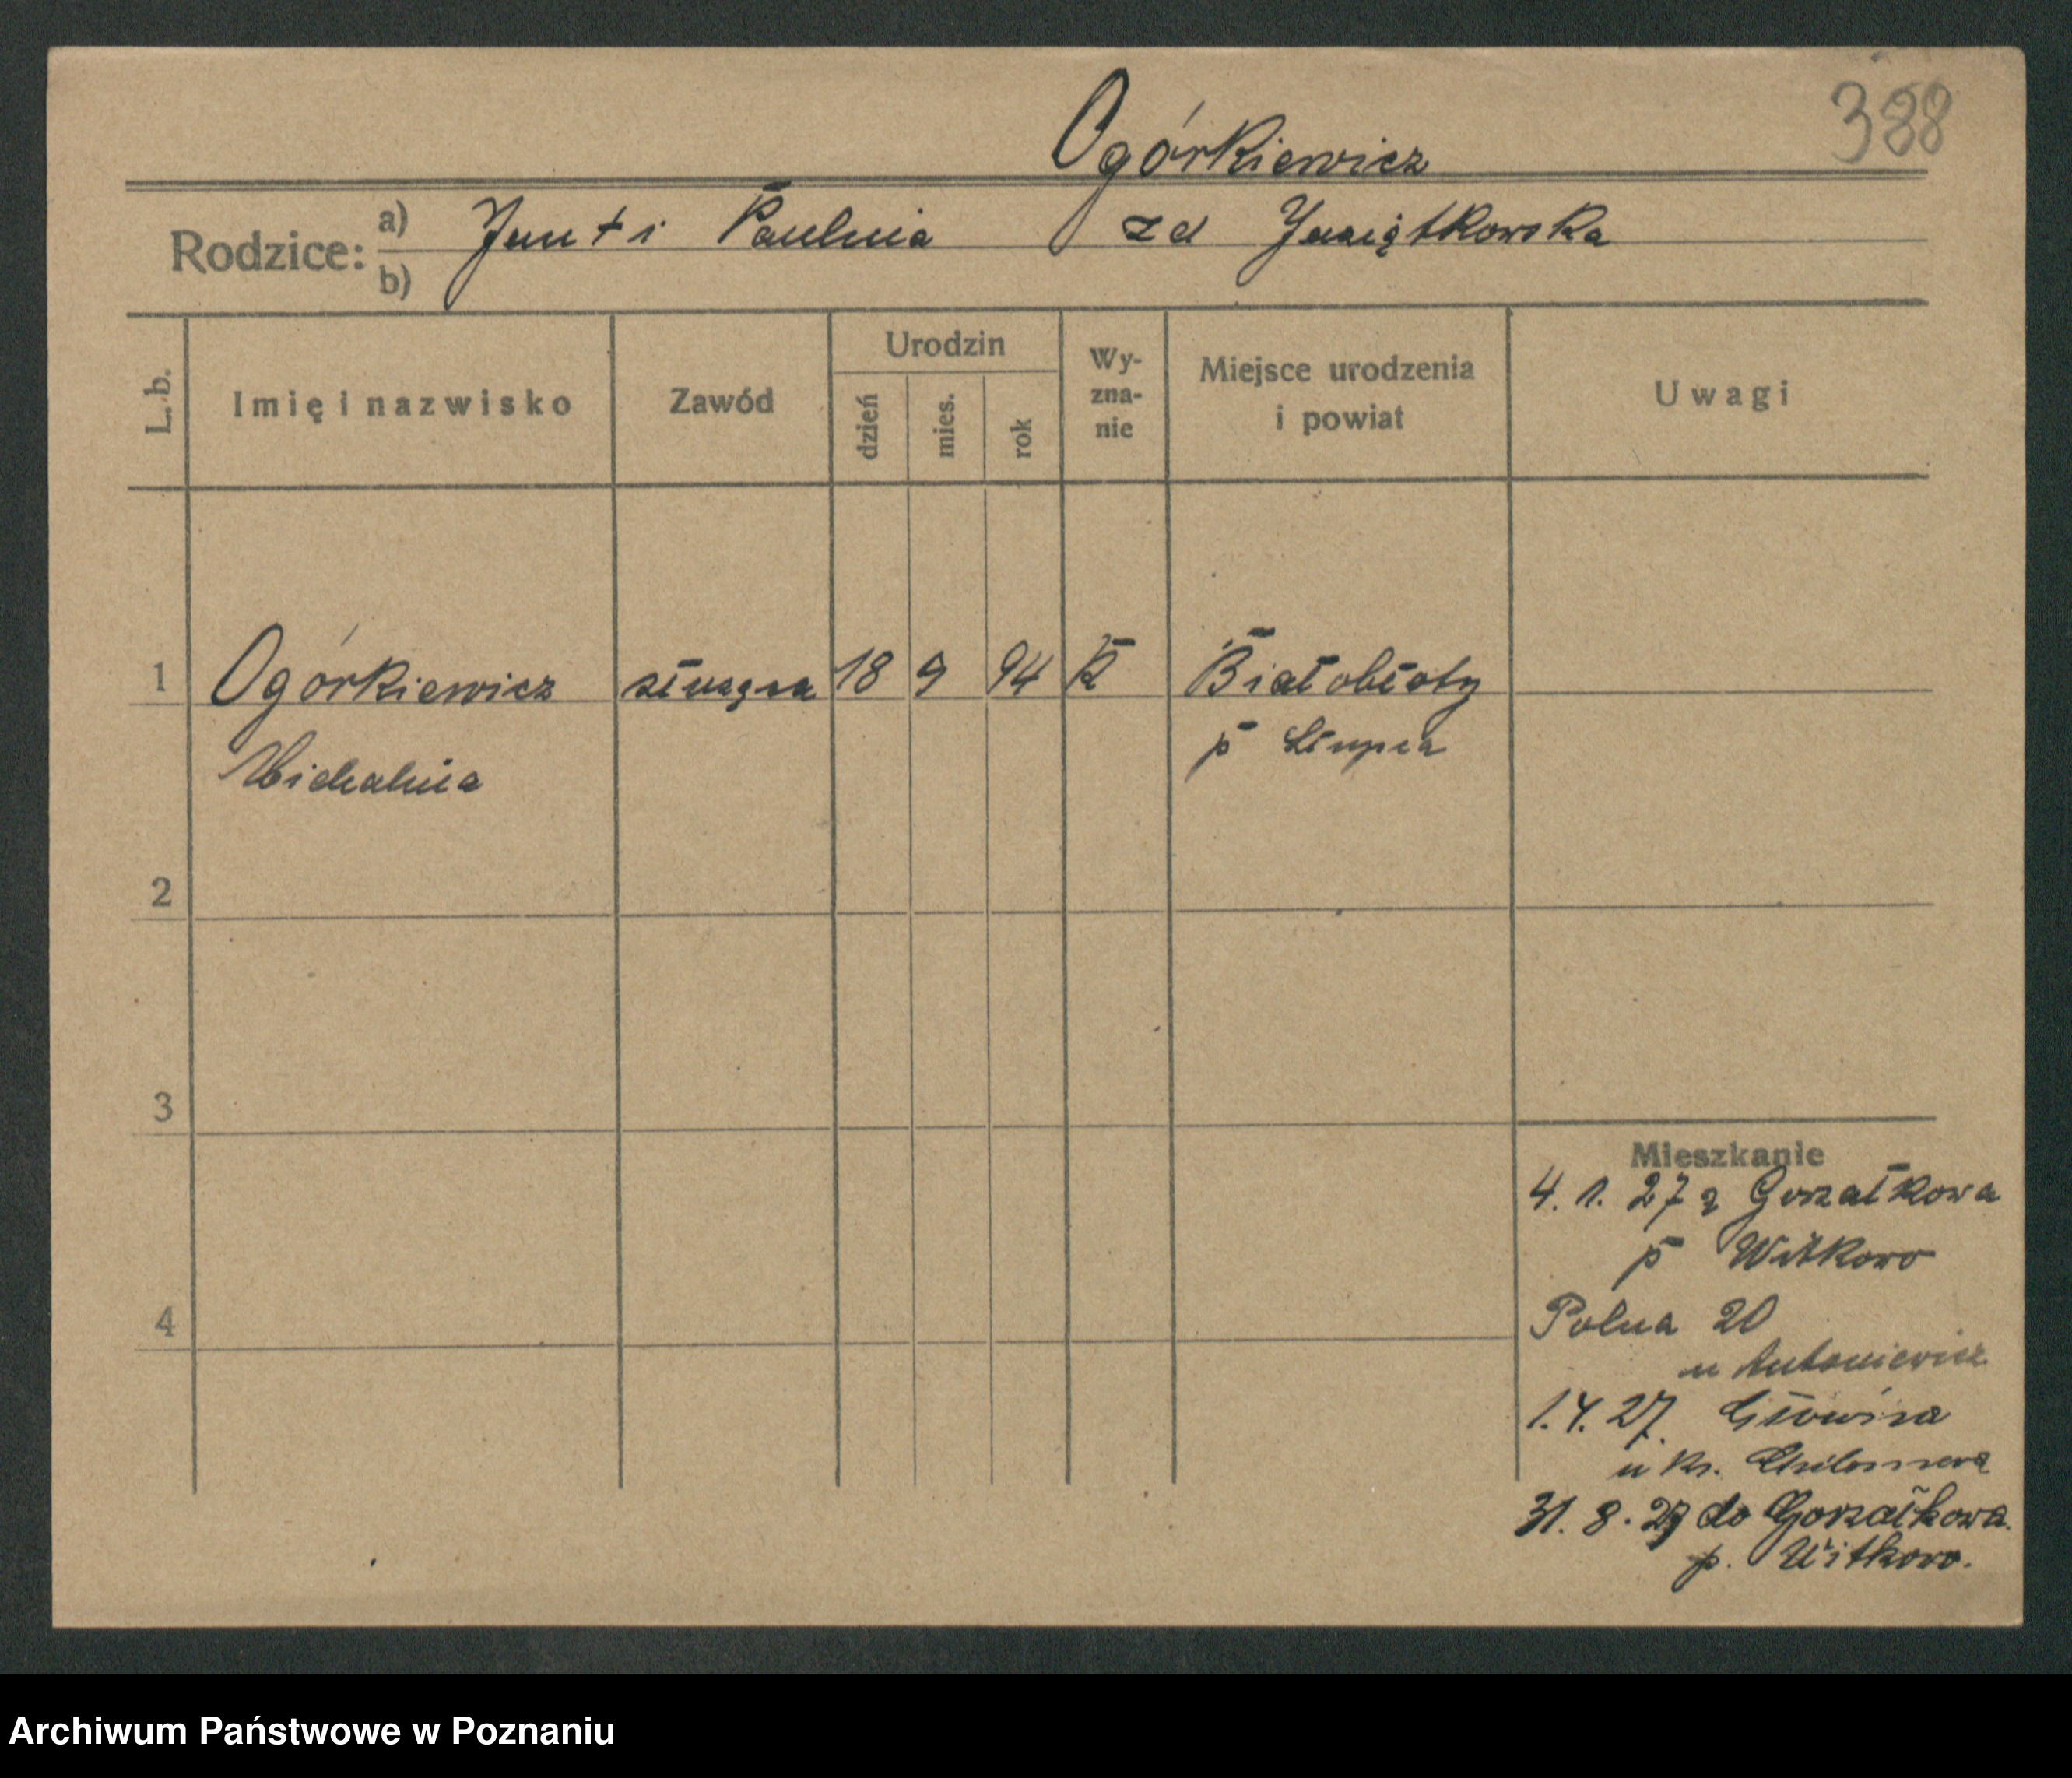 Ogórkiewicz
388
Rodzice: a) Jan + i Paulina zd
b)
L. b.
Imię i nazwisko
Zawód
Urodzin
dzień
mies.
rok
Wy-
zna-
nie
Miejsce urodzenia
i powiat
Uwagi
1 Ogórkiewicz służąca 18 9 94 K Białobłoty
Michalina p Słupca
2
3
4
Mieszkanie
4. 1. 27 z Gorzałkowa
p Witkowo
Polna 20
u Antoniewicz
1.4.27. Główna
u ks.
31. 8. 27 do Gorzałkowa.
p. Witkowo.
Archiwum Państwowe w Poznaniu